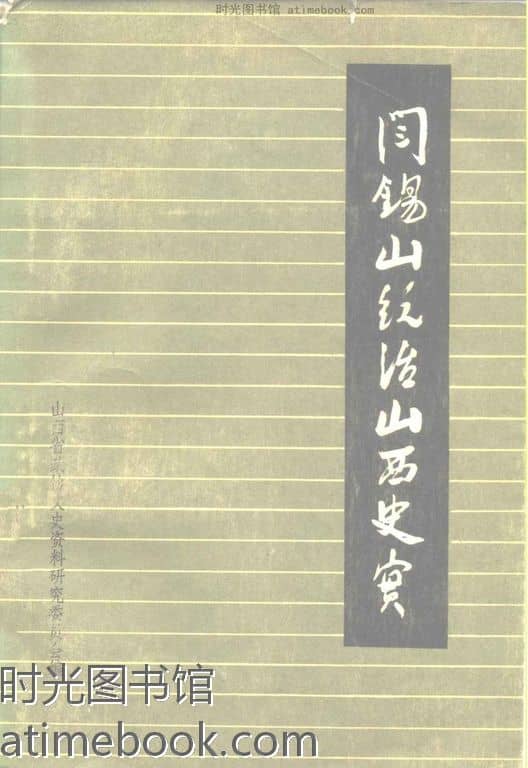 时光图书馆 atimebook.com
阎锡山统治山西史实
山西省政协文史资料研究委员会编
时光图书馆
atimebook.com